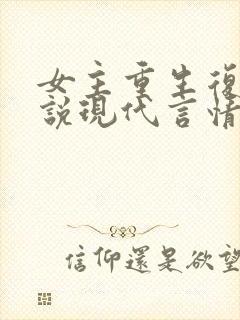 女主重生復
說現代言情
信仰還是欲望